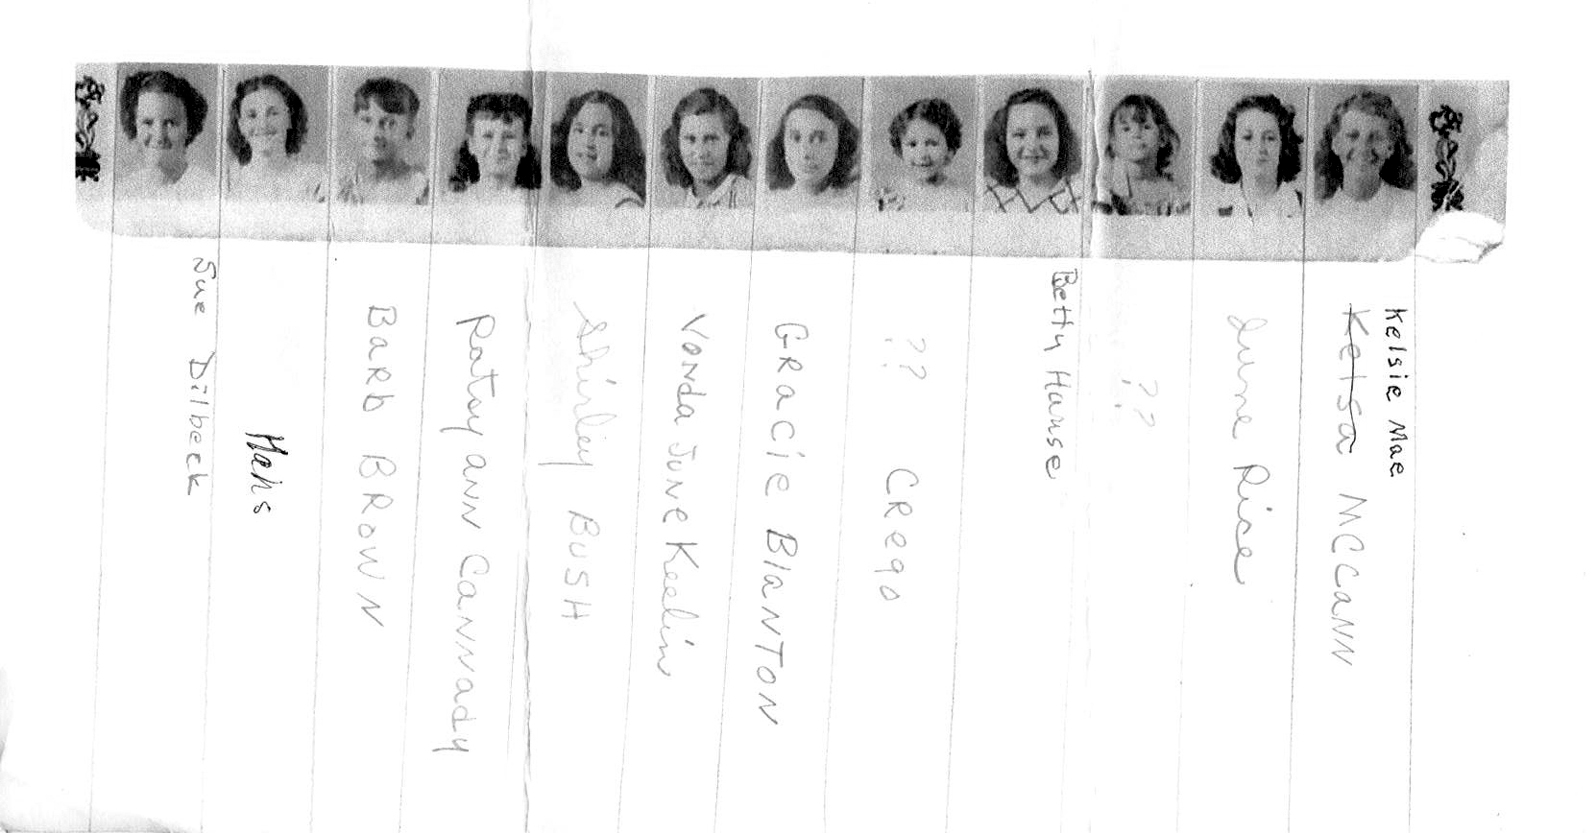 Sue Dilbeck
Hahs
BARb BROWN
Patsy ANN CaNNady
Shirley BUSH
VONda JUNE Keelin
GRaciE BlaNTON
?? CRego
Betty House
??
June Rice
Kelsie Mae
Kelsa MCCaNN